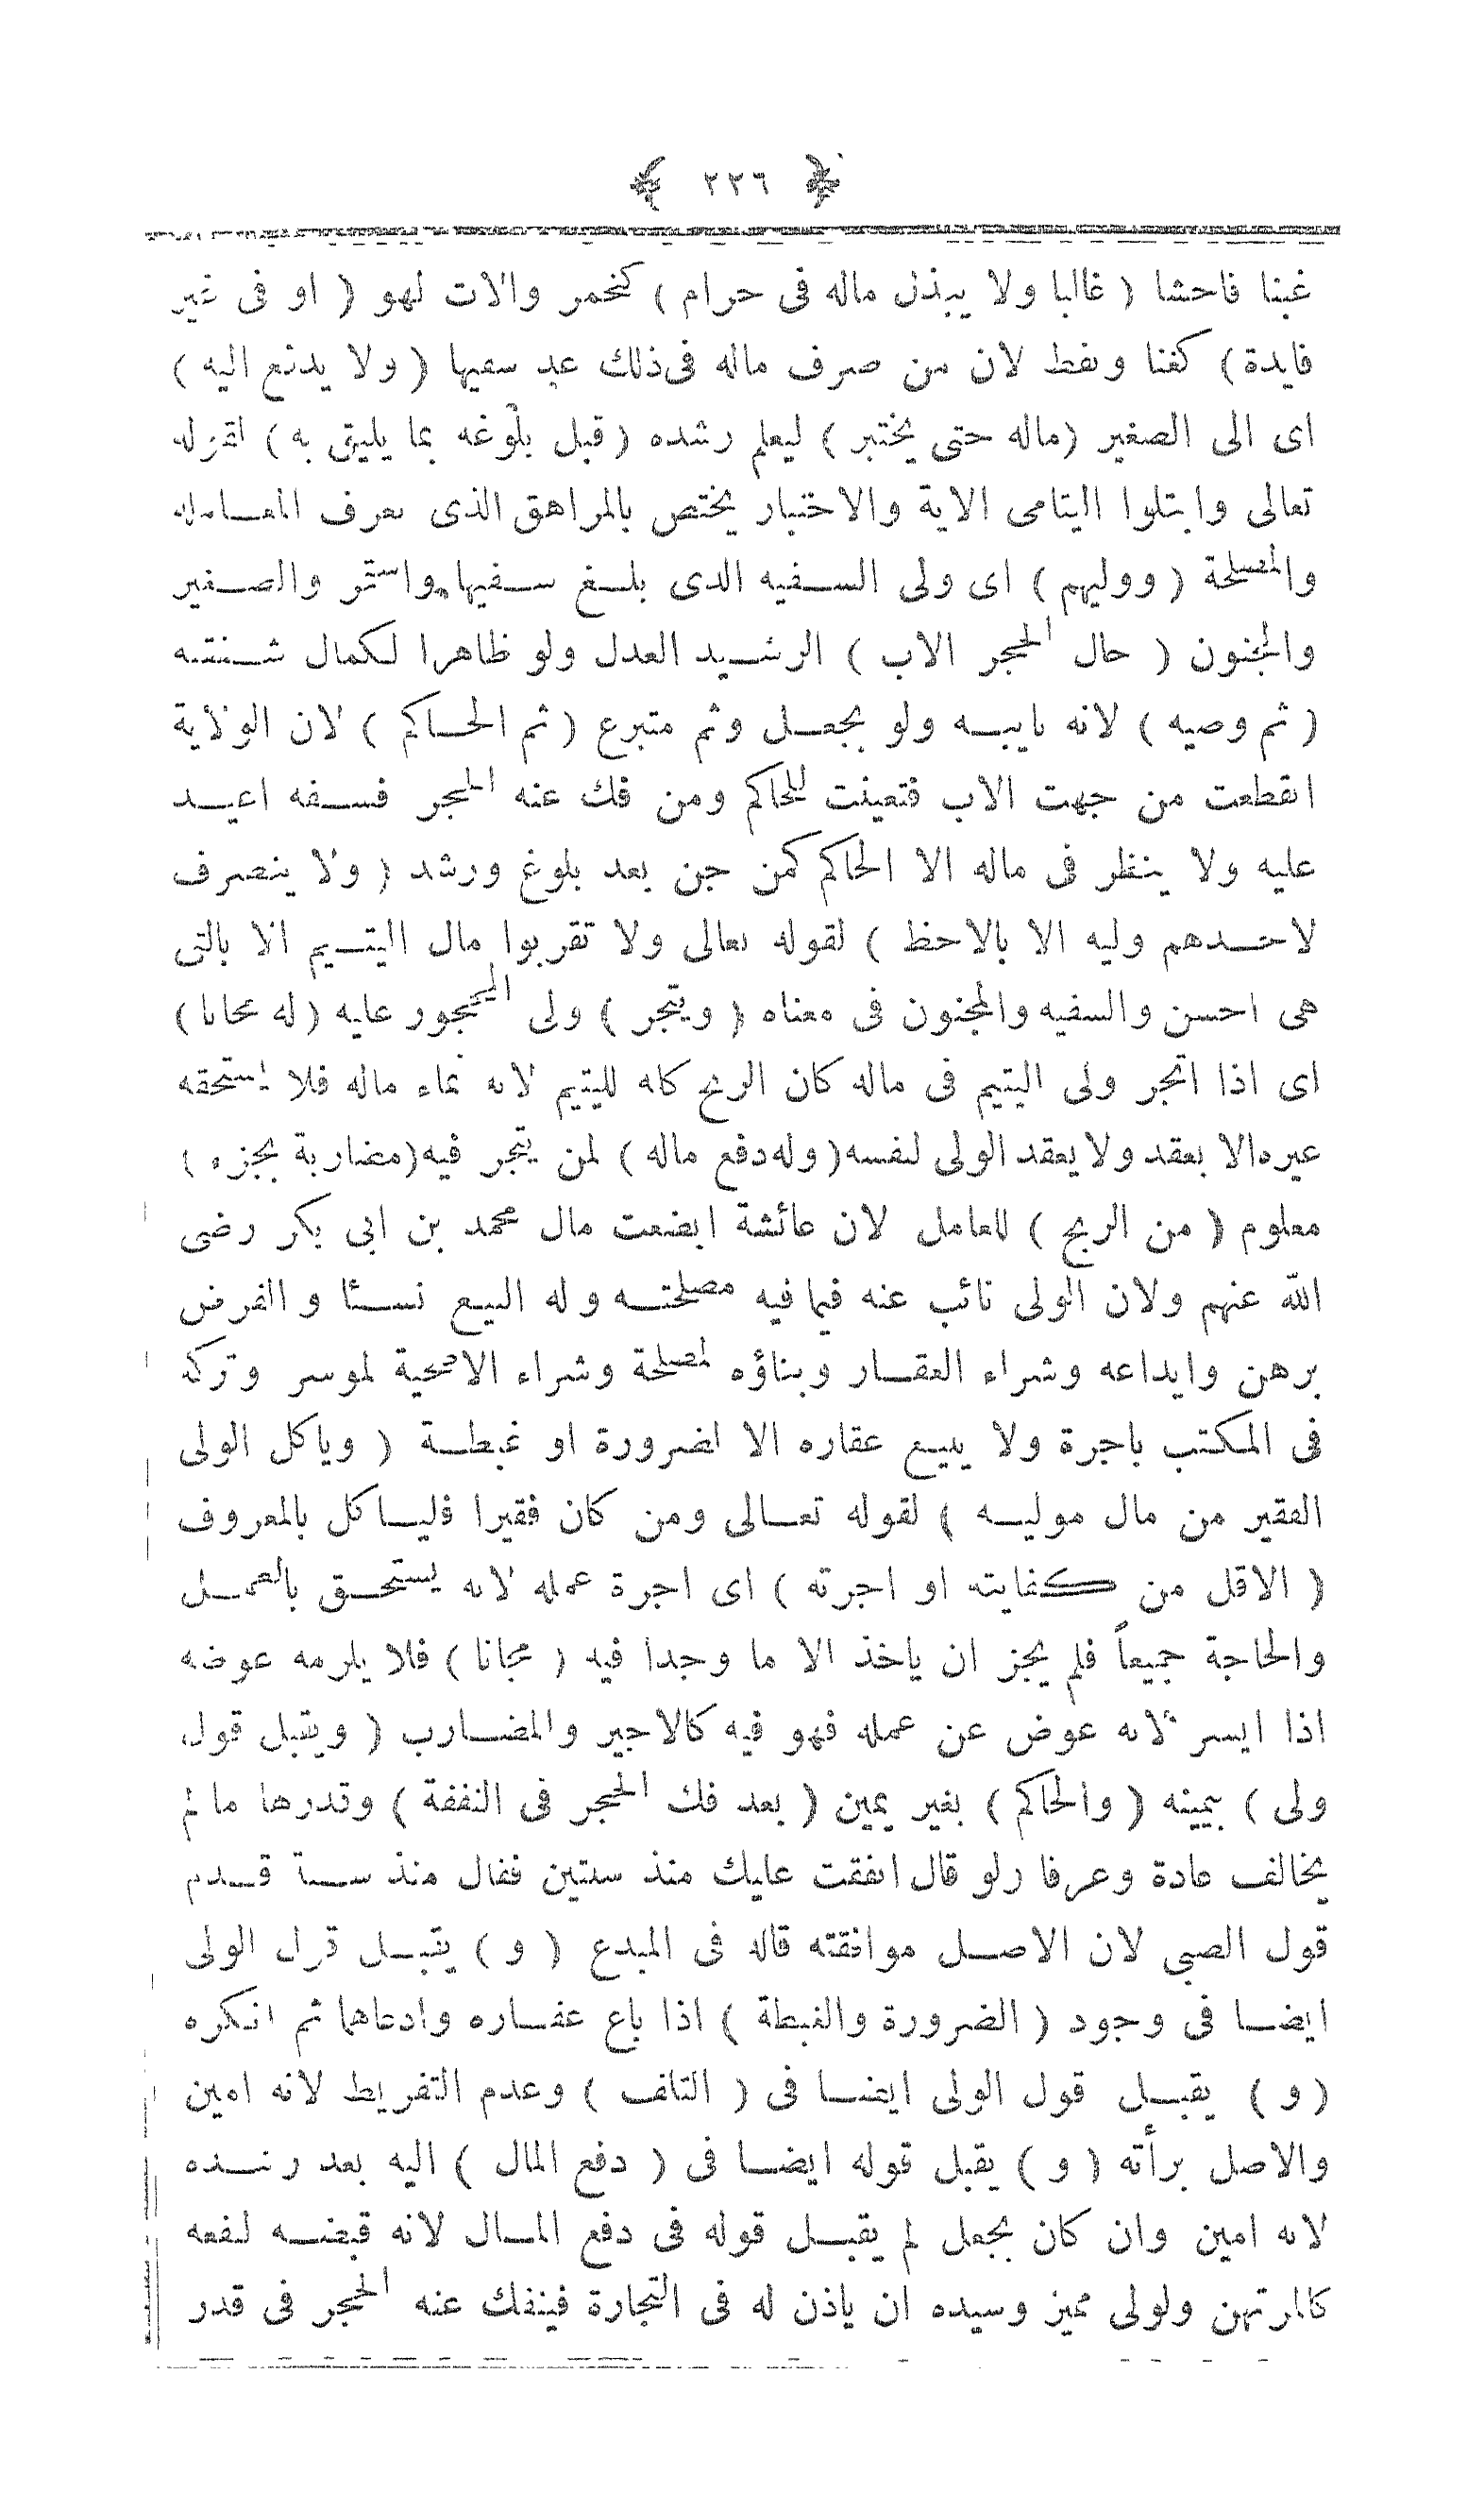 ٢٢٦
غبنا فاحشا ( غالبا ولا يبذل ماله فى حرام ) كخمر والات لهو ( او فى غير
فايدة ) كغنا ونفط لان من صرف ماله فى ذلك عد سفيها ( ولا يدفع اليه )
اى الى الصغير ( ماله حتى يختبر ) ليعلم رشده ( قبل بلوغه بما يليق به ) لقوله
تعالى وابتلوا اليتامى الاية والاختبار يختص بالمراهق الذى يعرف المعاملة
والمصلحة ( ووليهم ) اى ولى السفيه الذى بلغ سفيها واستمر والصغير
والمجنون ( حال الحجر الاب ) الرشيد العدل ولو ظاهرا لكمال شفقته
( ثم وصيه ) لانه نايبه ولو بجعل وثم متبرع ( ثم الحاكم ) لان الولاية
انقطعت من جهت الاب فتعينت للحاكم ومن فك عنه الحجر فسفه اعيد
عليه ولا ينظر فى ماله الا الحاكم كمن جن بعد بلوغ ورشد ( ولا يتصرف
لاحدهم وليه الا بالاحظ ) لقوله تعالى ولا تقربوا مال اليتيم الا بالتى
هى احسن والسفيه والمجنون فى معناه ( ويتجر ) ولى المحجور عليه ( له مجانا )
اى اذا اتجر ولى اليتيم فى ماله كان الربح كله لليتيم لانه نماء ماله فلا يستحقه
غيره الا بعقد ولا يعقد الولى لنفسه ( وله دفع ماله ) لمن يتجر فيه ( مضاربة بجزء )
معلوم ( من الربح ) للعامل لان عائشة ابضعت مال محمد بن ابى بكر رضى
الله عنهم ولان الولى نائب عنه فيما فيه مصلحته وله البيع نسئا والقرض
برهن وايداعه وشراء العقار وبناؤه لمصلحة وشراء الاضحية لموسر وتركه
فى المكتب باجرة ولا يبيع عقاره الا لضرورة او غبطة ( وياكل الولى
الفقير من مال موليه ) لقوله تعالى ومن كان فقيرا فلياكل بالمعروف
( الاقل من كفايته او اجرته ) اى اجرة عمله لانه يستحق بالعمل
والحاجة جميعاً فلم يجز ان ياخذ الا ما وجدا فيه ( مجانا ) فلا يلزمه عوضه
اذا ايسر لانه عوض عن عمله فهو فيه كالاجير والمضارب ( ويقبل قول
ولى ) بيمينه ( والحاكم ) بغير يمين ( بعد فك الحجر فى النفقة ) وقدرها ما لم
يخالف عادة وعرفا ولو قال انفقت عليك منذ سنتين فقال منذ سنة قدم
قول الصبى لان الاصل موافقته قاله فى المبدع ( و ) يقبل قول الولى
ايضا فى وجود ( الضرورة والغبطة ) اذا باع عقاره وادعاهما ثم انكره
( و ) يقبل قول الولى ايضا فى ( التلف ) وعدم التفريط لانه امين
والاصل برأته ( و ) يقبل قوله ايضا فى ( دفع المال ) اليه بعد رشده
لانه امين وان كان بجعل لم يقبل قوله فى دفع المال لانه قبضه لنفعه
كالمرتهن ولولى مميز وسيده ان ياذن له فى التجارة فينفك عنه الحجر فى قدر